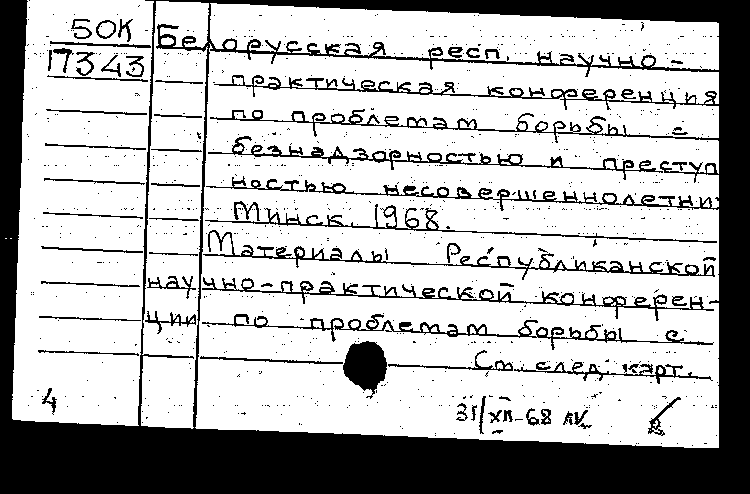 50К
17343
Белорусская респ. научно-
практическая конференция
по проблемам борьбы с
безнадзорностью и преступ
ностью несовершеннолетних
Минск. 1968.
Материалы Республиканской
научно-практической конферен-
ции по проблемам борьбы с
См. след. карт.
4
31/XII-68